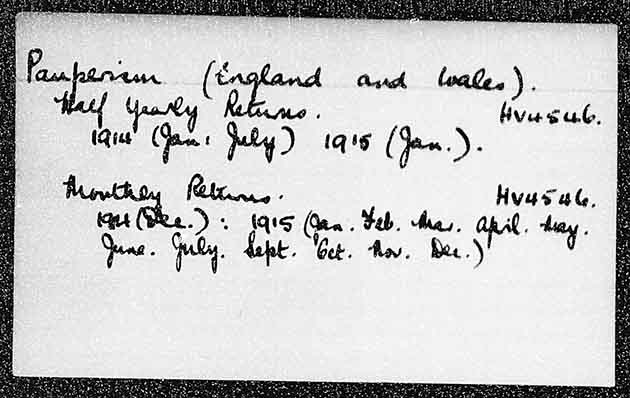 Pauperism (England and Wales).
Half Yearly Returns. HV4546.
1914 (Jan: July) 1915 (Jan.).
Monthly Returns. HV4546.
1914 (Dec.): 1915 (Jan. Feb. Mar. April. May.
June. July. Sept. Oct. Nov. Dec.)